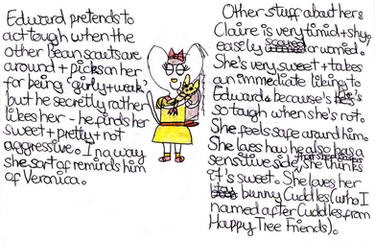 Edward pretends to
act tough when the
other bean scouts are
around + picks on her
for being 'girly + weak'
but he secretly rather
likes her - he finds her
sweet + pretty + not
aggressive. In a way
she sort of reminds him
of Veronica.
Other stuff about her:
Claire is very timid + shy
easily worried.
She's very sweet + takes
an immediate liking to
Edward because he's
so tough when she's not.
She feels safe around him.
She loves how he also has a
sensitive side she thinks
it's sweet. She loves her
bunny Cuddles (who I
named after Cuddles from
Happy Tree Friends).